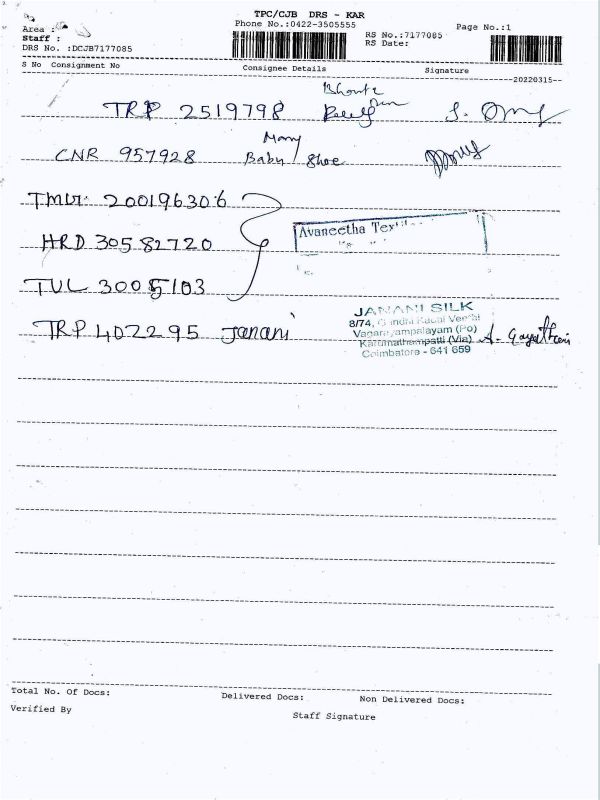 TPC/CJB DRS - KAR
Phone No.:0422-3505555
Page No.:1
Area :
Staff :
RS No.:7177085
RS Date:
DRS No. :DCJB7177085
S No Consignment No Consignee Details Signature
--20220315--
TRP 2519798
CNR 957928 Baby Shoe
200196306
HRD 30582720 Avaneetha
TUL 30051103
TRP 402295 Janani
JANANI SILK
8/74,
(Po)
Karumathampatti (Via)
Coimbatore - 641 659
A. Gayathri
Total No. Of Docs: Delivered Docs: Non Delivered Docs:
Verified By
Staff Signature